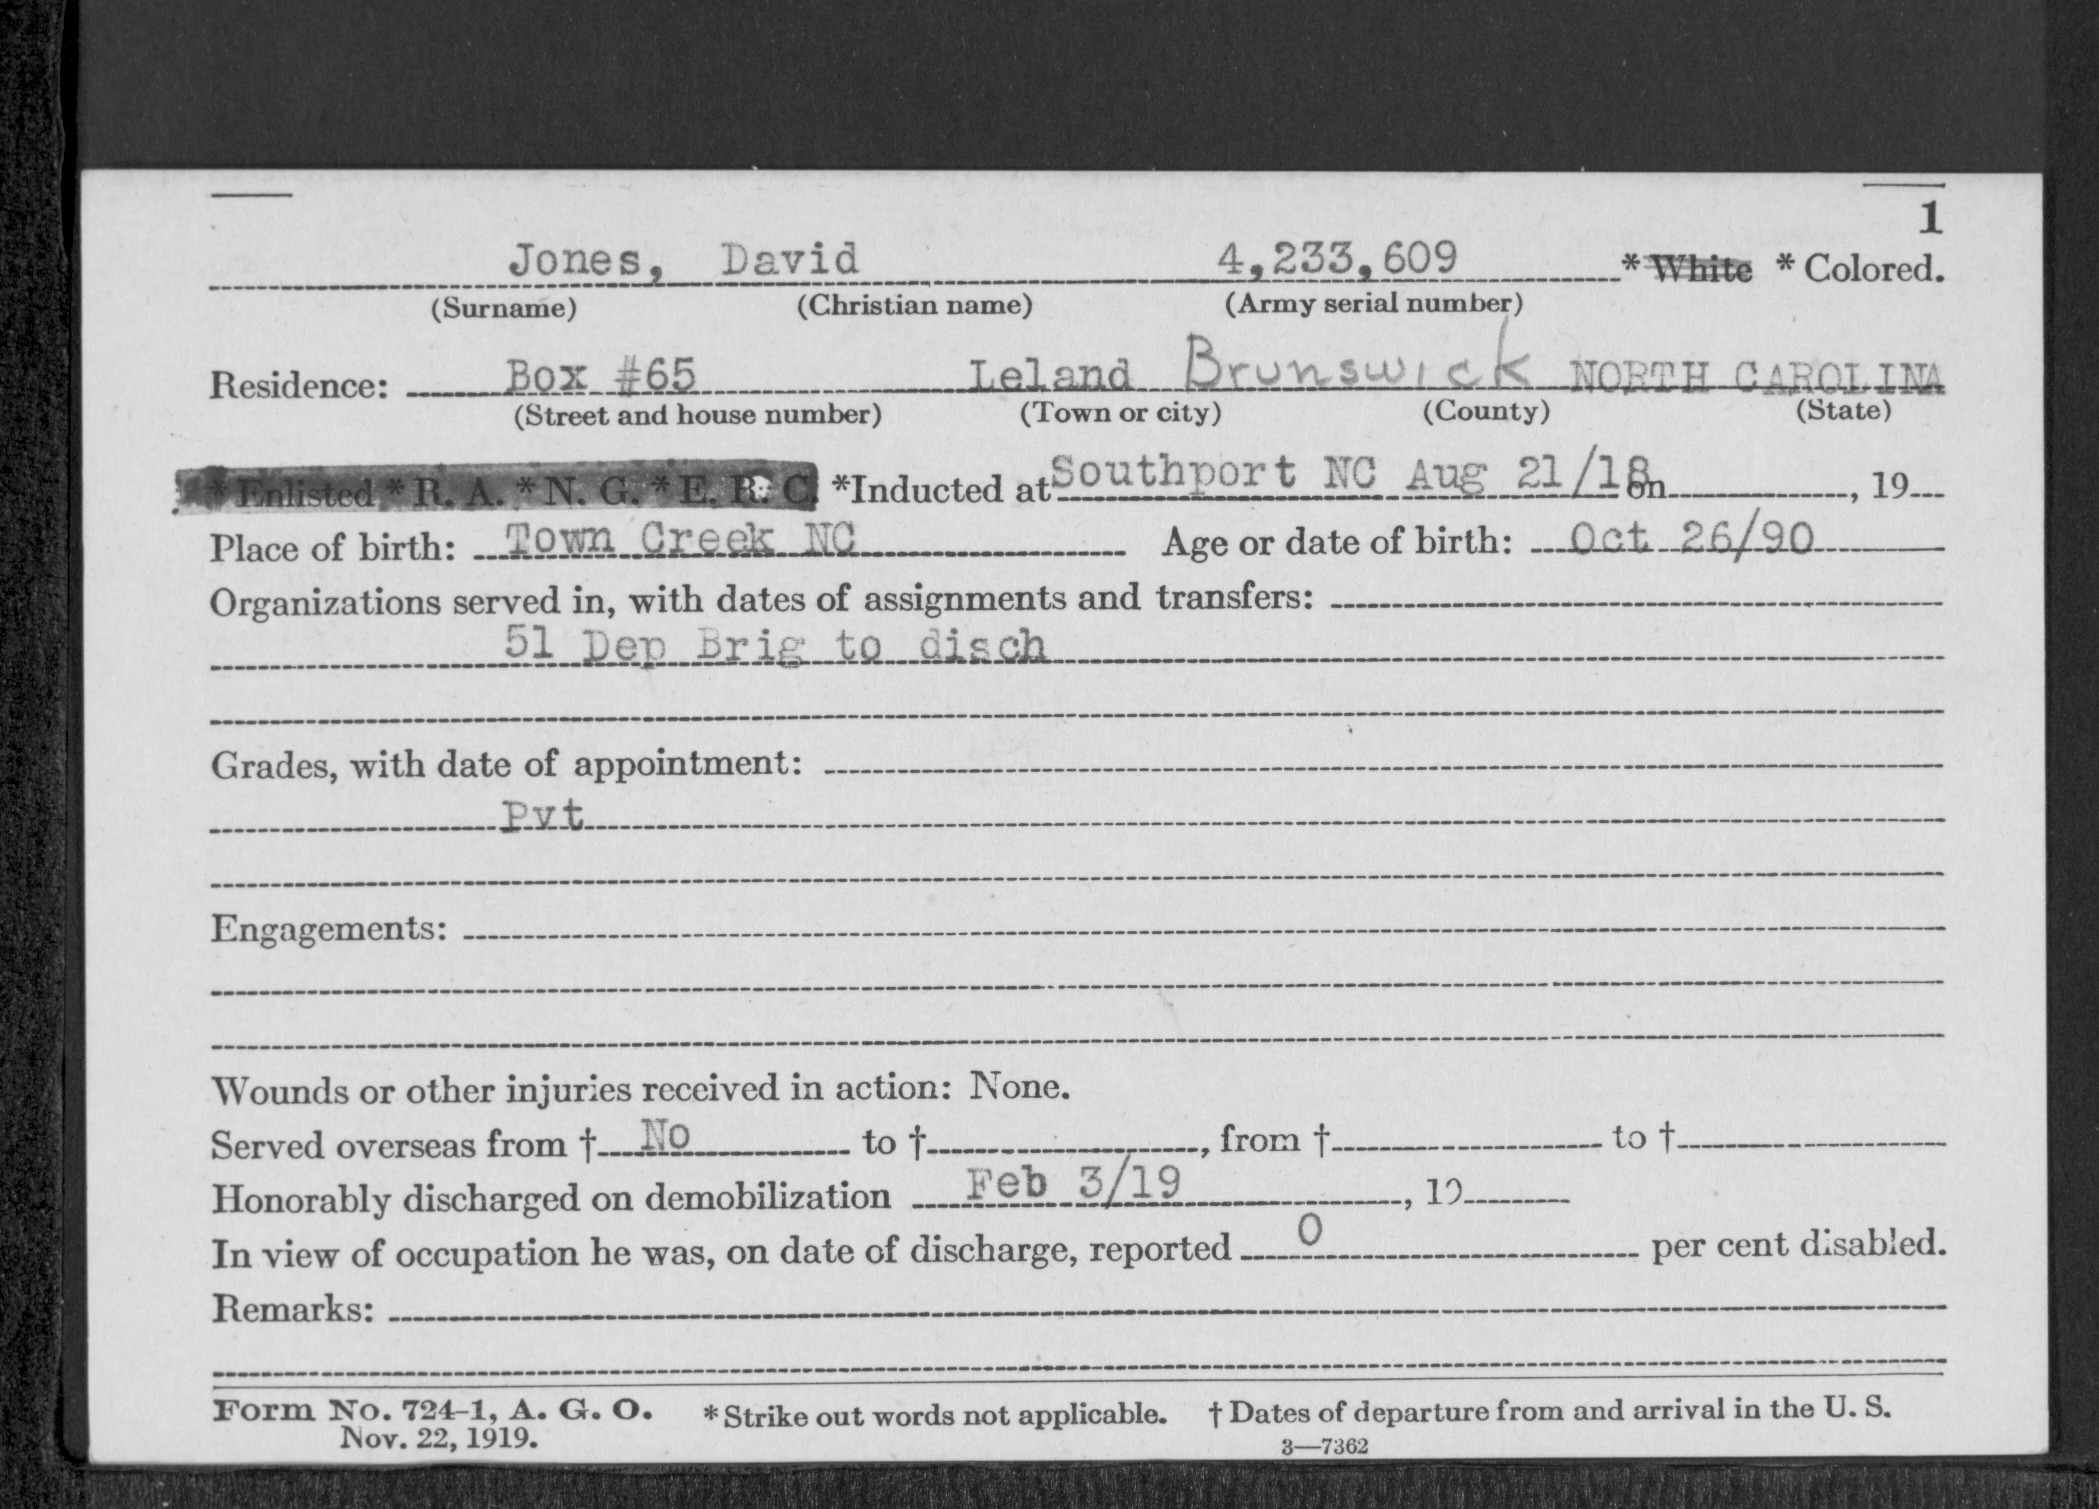 1
Jones, David 4,233,609 * White * Colored.
(Surname) (Christian name) (Army serial number)
Residence: Box #65 Leland Brunswick NORTH CAROLINA
(Street and house number) (Town or city) (County) (State)
* Enlisted * R. A. * N. G. * E. R. C. *Inducted at Southport NC Aug 21/18 on , 19
Place of birth: Town Creek NC Age or date of birth: Oct 26/90
Organizations served in, with dates of assignments and transfers:
51 Dep Brig to disch
Grades, with date of appointment:
Pvt
Engagements:
Wounds or other injuries received in action: None.
Served overseas from † No to † , from † to †
Honorably discharged on demobilization Feb 3/19 , 19
In view of occupation he was, on date of discharge, reported 0 per cent disabled.
Remarks:
Form No. 724-1, A. G. O. * Strike out words not applicable. † Dates of departure from and arrival in the U. S.
Nov. 22, 1919. 3—7362